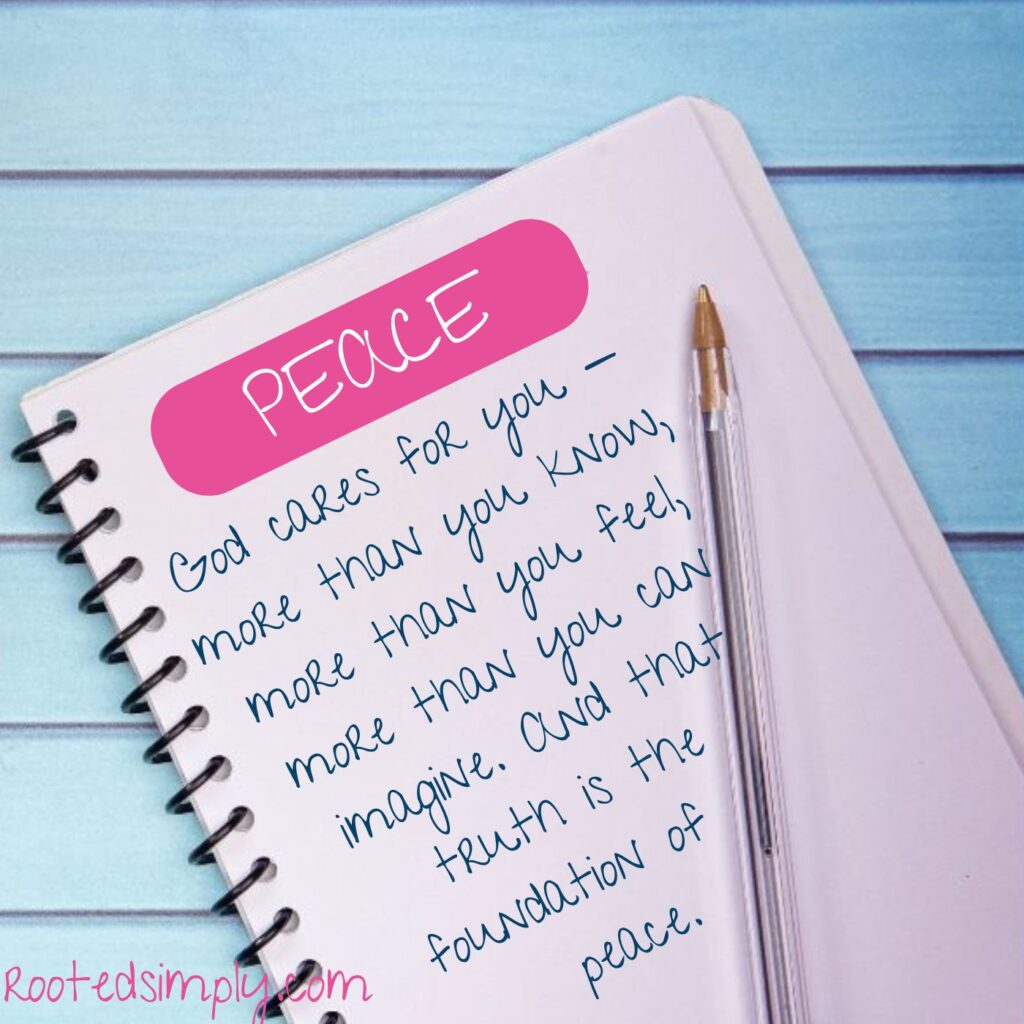 PEACE
God cares for you –
more than you know,
more than you feel,
more than you can
imagine. And that
truth is the
foundation of
peace.
Rootedsimply.com